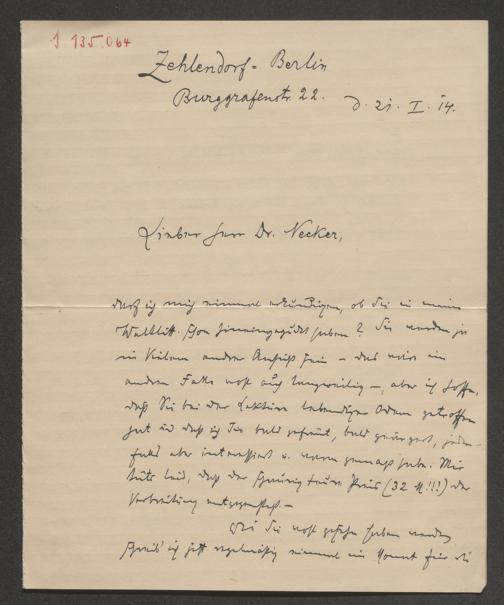 J 135.064
Zehlendorf-Berlin
Burggrafenstr. 22. d. 21. I. 14.
Lieber Herr Dr. Necker,
darf ich mich einmal erkundigen, ob Sie in meine
Weltlitt. schon hineingeguckt haben? Sie werden ja
in Vielem andrer Ansicht sein – das wäre im
andern Falle wohl auch langweilig –, aber ich hoffe,
daß Sie bei der Lektüre lebendiger Odem getroffen
hat und daß ich Sie bald gefreut, bald geärgert, jeden-
falls aber interessiert u. warm gemacht habe. Mir
tuts leid, daß der schaurig teure Preis (32 M!!!) der
Verbreitung entgegensteht –
Wie Sie wohl gesehen haben werden
schreib' ich jetzt regelmäßig einmal im Monat für die